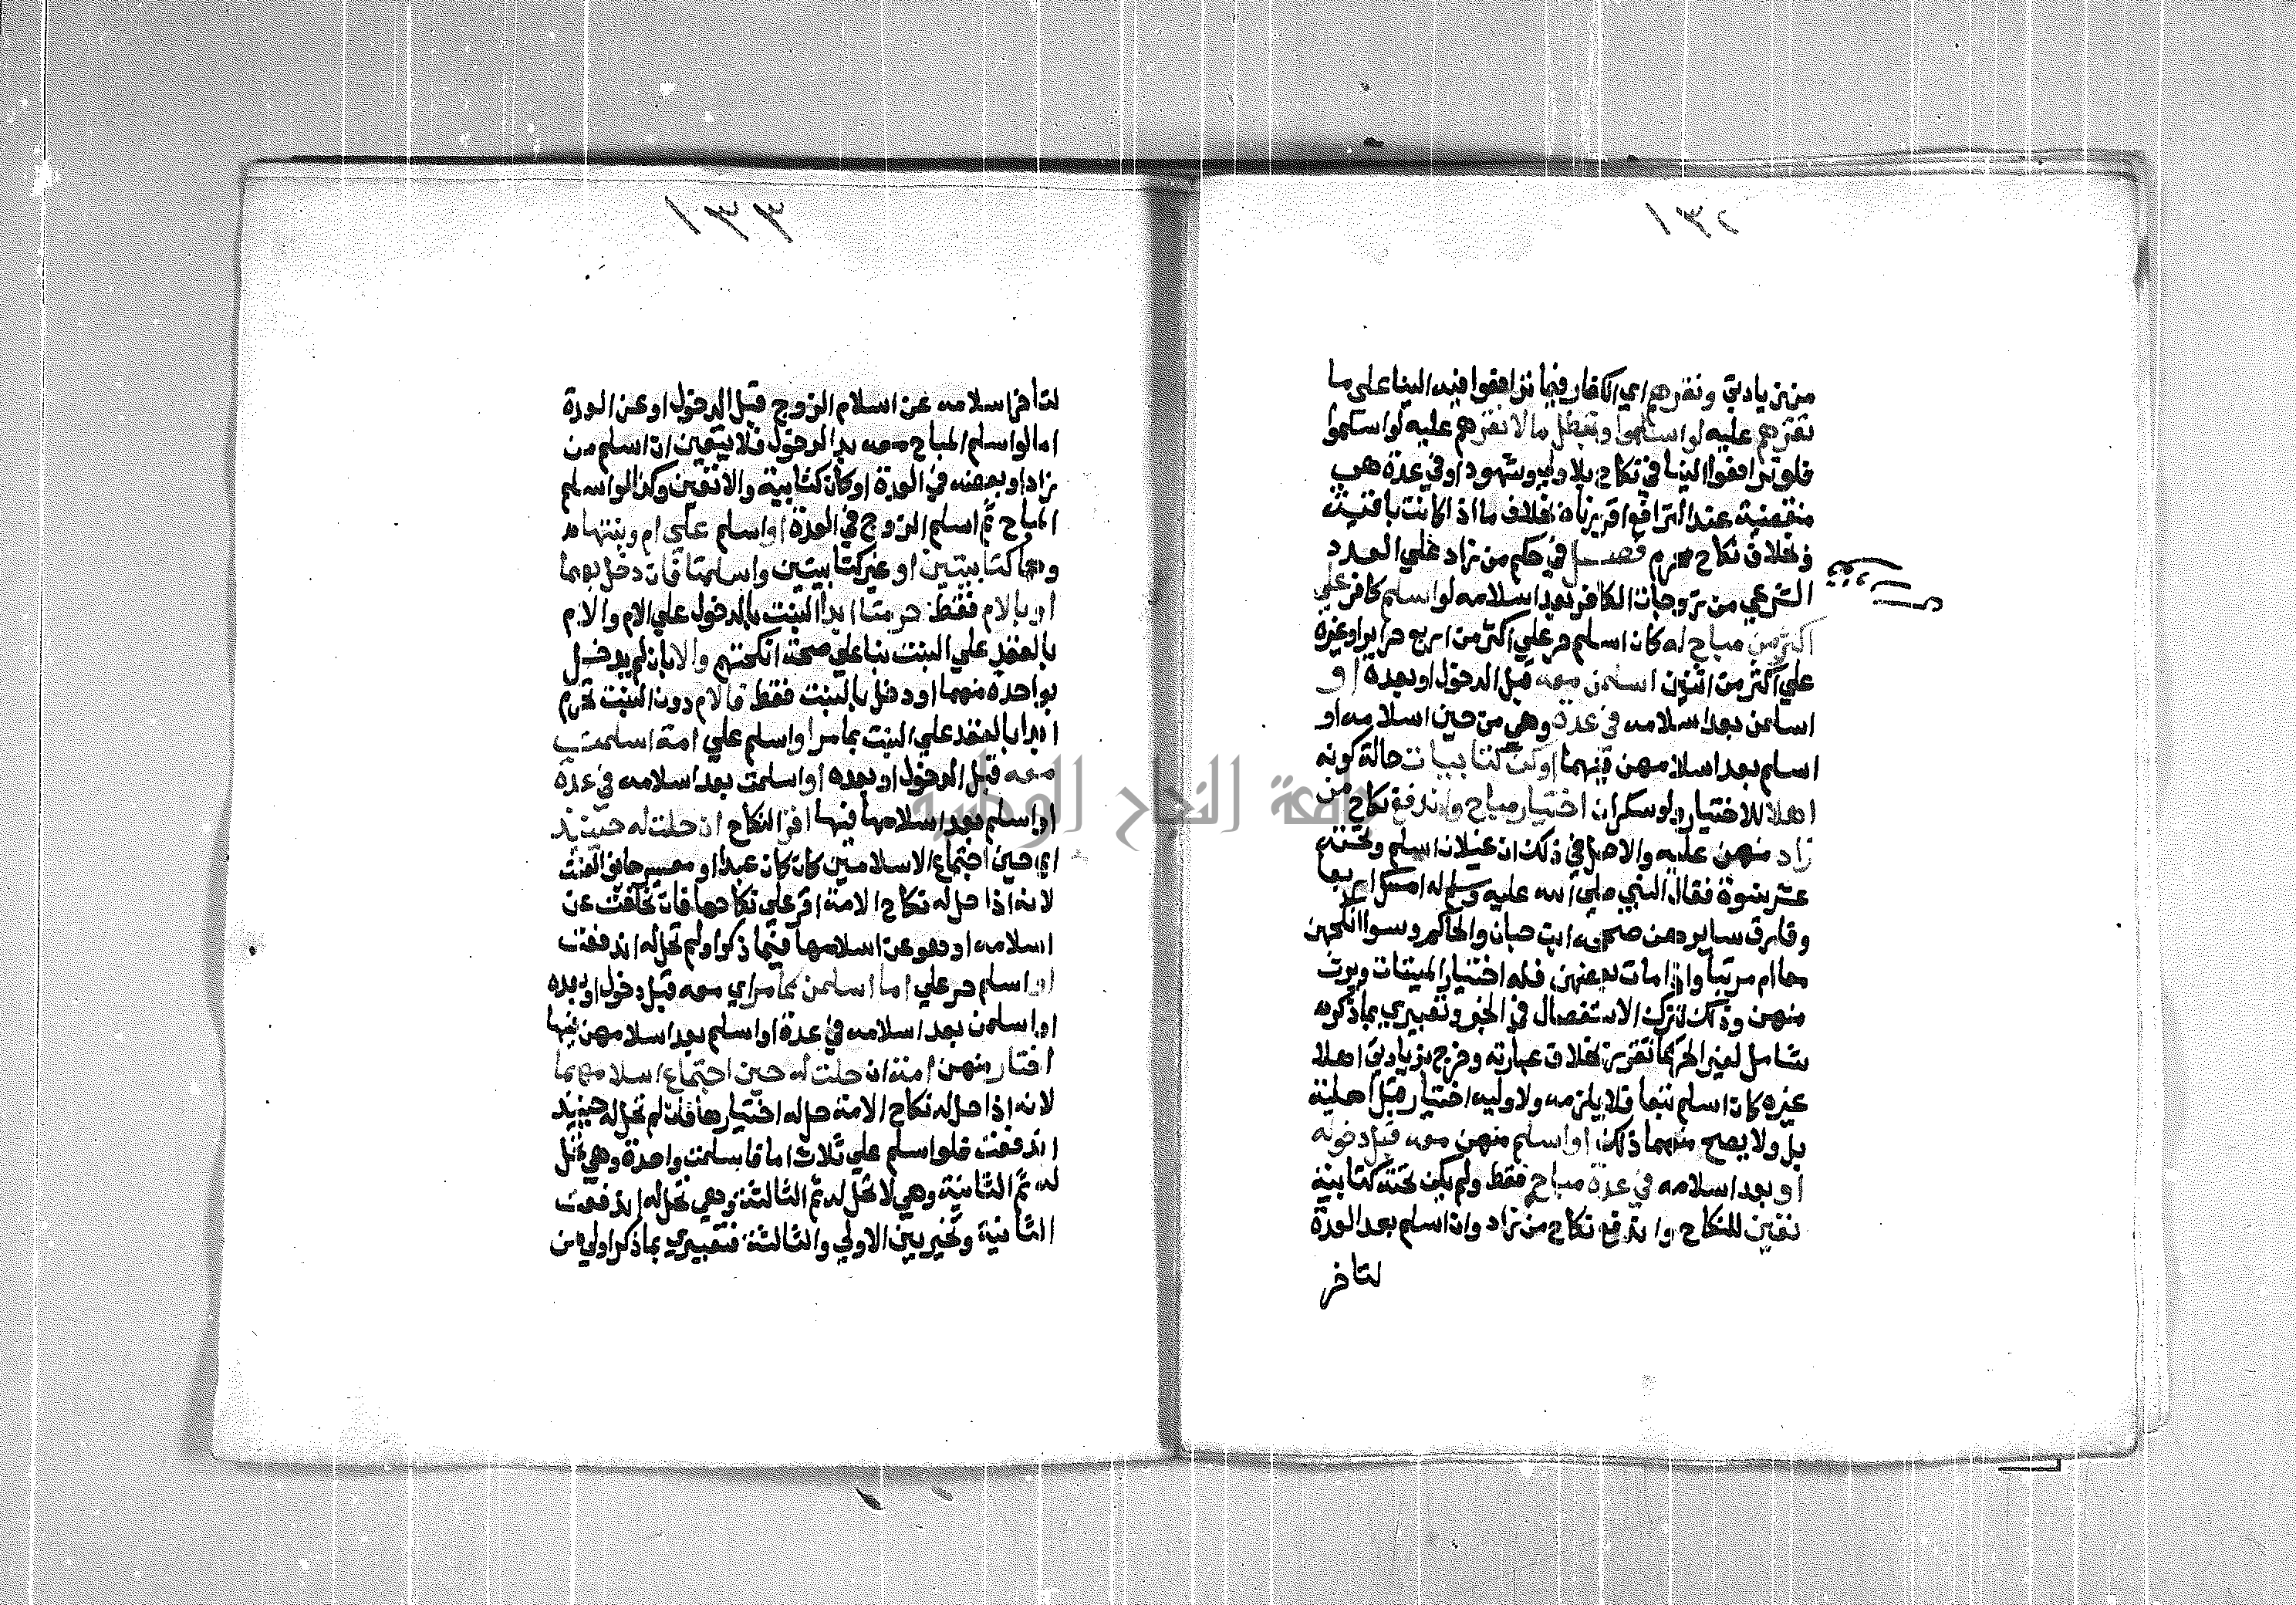 ١٣٢
من زيادتي ونقرهم اي الكفار فيما ترافعوا فيه الينا على ما
نقرهم عليه لو اسلموا ونبطل ما لا نقرهم عليه لو اسلموا
فلو ترافعوا الينا في نكاح بلا ولي وشهود او في عدة هي
منقضية عند الترافع اقررناه بخلاف ما اذا كانت باقية
وبخلاف نكاح محرم فصل في حكم من زاد على العدد
الشرعي من زوجات الكافر بعد اسلامه لو اسلم كافر على
اكثر من مباح له كان اسلم حر علي اكثر من اربع حراير او غيره
علي اكثر من اثنتين اسلمن معه قبل الدخول او بعده او
اسلمن بعد اسلامه في عدة وهي من حين اسلامه او
اسلم بعد اسلامهن فيها او كن كتابيات حالة كونه
اهلا للاختيار ولو سكران اختيار مباح واندفع نكاح من
زاد منهن عليه والاصل في ذلك ان غيلان اسلم وتحته
عشر نسوة فقال النبي صلي الله عليه وسلم له امسك اربعا
وفارق سايرهن صححه ابن حبان والحاكم وسوا انكحهن
معا ام مرتبا واذا مات بعضهن فله اختيار الميتات ويرث
منهن وذلك لترك الاستفصال في الخبر وتعبيري بما ذكره
شامل لغير الحر كما تقرر بخلاف عبارته وخرج بزيادتي اهلا
غيره كان اسلم تبعا فلا يلزمه ولا وليه اختيار قبل اهليته
بل ولا يصح منهما ذلك او اسلم منهن معه قبل دخوله
او بعد اسلامه في عدة مباح فقط ولم يكن تحته كتابية
تعين للنكاح واندفع نكاح من زاد وان اسلم بعد العدة
لتاخر
١٣٣
لتاخر اسلامه عن اسلام الزوج قبل الدخول او عن العدة
اما لو اسلم المباح معه بعد الدخول فلا يتعين ان اسلم من
زاد او بعضه في العدة او كان كتابية والا تعين وكذا لو اسلم
المباح ثم اسلم الزوج في العدة او اسلم علي ام وبنتها
وهما كتابيتين او غير كتابيتين واسلمتا فان دخل بهما
او بالام فقط حرمتا ابدا البنت بالدخول علي الام والام
بالعقد علي البنت بنا علي صحة انكحتهم والا بان لم يدخل
بواحدة منهما او دخل بالبنت فقط فالام دون البنت تحرم
ابدا بالعقد علي البنت بما مر او اسلم علي امة اسلمت
معه قبل الدخول او بعده او اسلمت بعد اسلامه في عدة
او اسلم بعد اسلامها فيها اقر النكاح ان حلت له حينيذ
اي حين اجتماع الاسلامين كان كان عبدا او معسرا خاف العنت
لانه اذا حل له نكاح الامة اقر علي نكاحها فان تخلفت عن
اسلامه او هو عن اسلامها فيما ذكر او لم تحل له اندفعت
او اسلم حر علي اما اسلمن كما مر اي معه قبل دخول او بعده
او اسلمن بعد اسلامه في عدة او اسلم بعد اسلامهن فيها
اختار منهن امة ان حلت له حين اجتماع اسلامهما
لانه اذا حل له نكاح الامة حل له اختيارها فان لم تحل له حينيذ
اندفعت فلو اسلم علي ثلاث اما فاسلمت واحدة وهي تحل
له ثم الثانية وهي لا تحل له ثم الثالثة وهي تحل له اندفعت
الثانية وتخير بين الاولي والثالثة فتعبيري بما ذكر اولي من
جامعة النجاح الوطنية